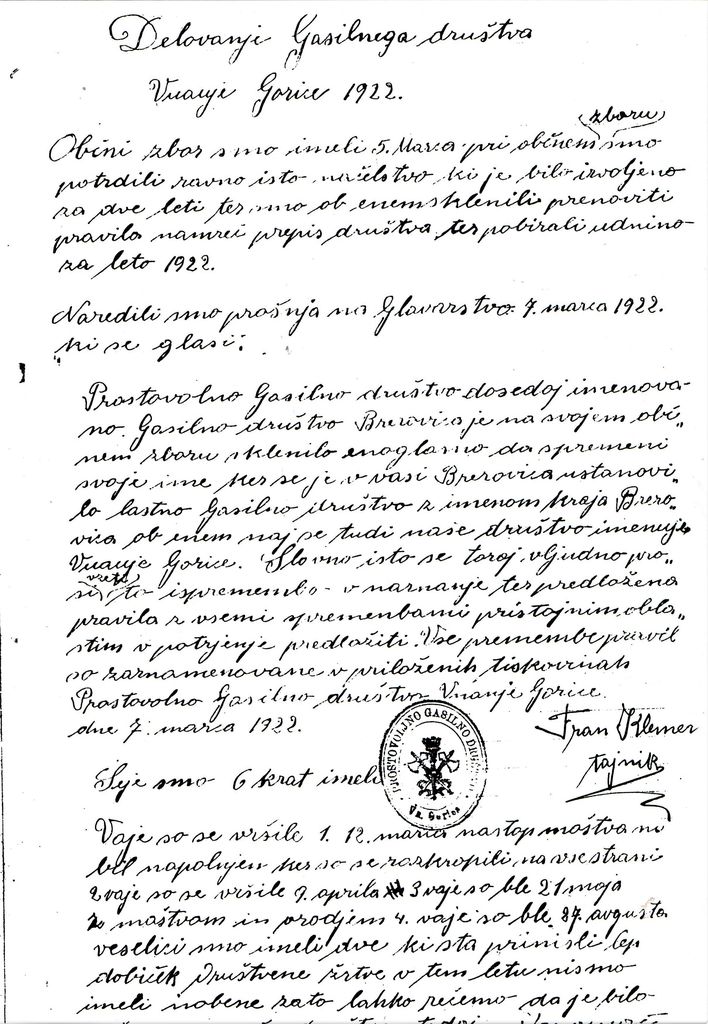 Delovanje Gasilnega društva
Vnanje Gorice 1922.
zboru
Občni zbor smo imeli 5. Marca pri občnem smo
potrdili ravno isto načelstvo ki je bilo izvoljeno
za dve leti ter smo ob enem sklenili prenoviti
pravila namreč prepis društva, ter pobirali udnino
za leto 1922.
Naredili smo prošnja na Glavarstvo 7. marca 1922.
"ki se glasi:
Prostovolno Gasilno društvo dosedaj imenova-
no. Gasilno društvo Brezovica, je na svojem obč„
nem zboru sklenilo enoglasno da spremeni
svoje ime ker se je v vasi Brezovica ustanovi„
lo lastno Gasilno društvo z imenom kraja Brezo„
vica ob enem naj se tudi naše društvo imenuje
Vnanje Gorice. Slavno isto se toraj vljudno pro„
vzeti
si to spremembo v naznanje ter predložena
pravila z vsemi spremenbami pristojnim obla„
stim v potrjenje predložiti. Vse premembe pravil
so zaznamenovane v priloženih tiskovinah
Prostovolno Gasilno društvo Vnanje Gorice.
dne 7. marca 1922.
Fran Klemer
tajnik
PROSTOVOLJNO GASILNO DRUŠTVO
Vn. Gorice
Seje smo 6 krat imeli
Vaje so se vršile 1. 12. marca nastop moštva ni
bil napolnjen ker so se razkropili na vse strani
2 vaje so se vršile 9. aprila 3 vaje so ble 21 moja
z moštvam in orodjem 4. vaje so ble 27. avgusta
veselici smo imeli dve ki sta prinisli lep
dobiček Društvene žrtve v tem letu nismo
imeli nobene zato lahko rečemo da je bilo